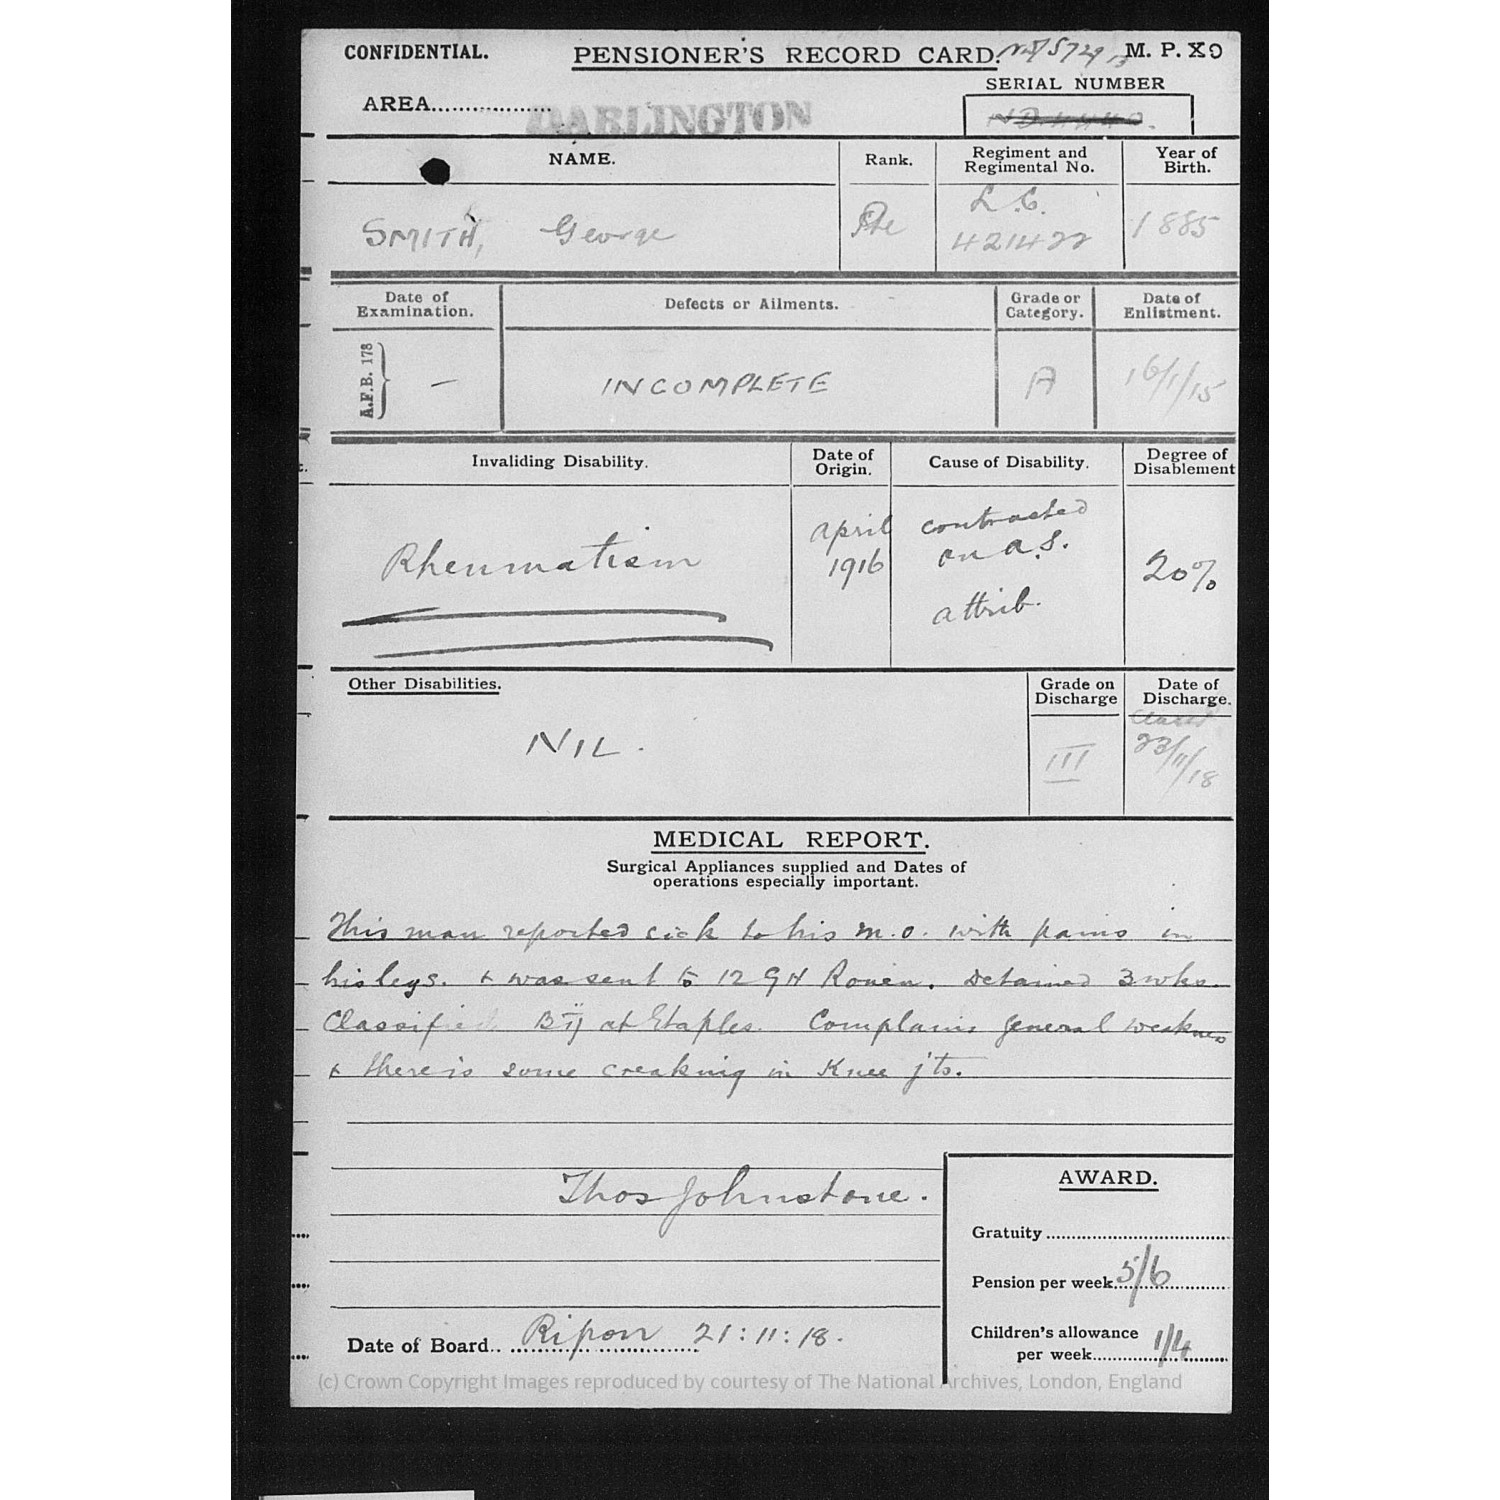 CONFIDENTIAL.
PENSIONER'S RECORD CARD.
M. P. X9
AREA
DARLINGTON
SERIAL NUMBER
NAME.
Rank.
Regiment and
Regimental No.
Year of
Birth.
SMITH, George
Pte
L.C.
421422
1885
Date of
Examination.
Defects or Ailments.
Grade or
Category.
Date of
Enlistment.
A.F.B. 178
—
INCOMPLETE
A
16/1/15
Invaliding Disability.
Date of
Origin.
Cause of Disability.
Degree of
Disablement
Rheumatism
April
1916
contracted
on a.S.
attrib.
20%
Other Disabilities.
Grade on
Discharge
Date of
Discharge.
NIL.
III
23/11/18
MEDICAL REPORT.
Surgical Appliances supplied and Dates of
operations especially important.
This man reported sick to his M.O. with pains in
his legs. + was sent to 12 GH Rouen. Detained 3 wks.
Classified Bii at Etaples. Complains general weakness
+ there is some creaking in Knee jts.
Thos Johnstone.
AWARD.
Gratuity
Pension per week 5/6
Children's allowance
per week 1/4
Date of Board.. Ripon 21:11:18.
(c) Crown Copyright Images reproduced by courtesy of The National Archives, London, England